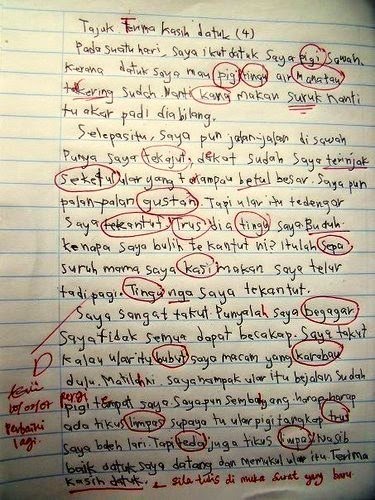 Tajuk Terima kasih datuk (4)
Pada suatu hari, saya ikut datuk saya pigi sawah
kerana datuk saya mau pigi tingu air manatau
tekering sudah. Nanti kana makan suruk nanti
tu akar padi dia bilang.
Selepas itu, saya pun jalan-jalan di sawah
Punya saya tekajut, dekat sudah saya terinjak
seketul ular yang terlampau betul besar. Saya pun
palan-palan gustan. Tapi ular itu tedengar
saya tekantut. Trus dia tingu saya. Buduh.
kenapa saya bulih tekantut ni? Itulah sepa
suruh mama saya kasi makan saya telur
tadi pagi. Tingu nga saya tekantut.
Saya sangat takut. Punyalah saya begagar.
Saya tidak semua dapat becakap. Saya takut
kalau ular itu bubut saya macam yang karabau
dulu. Matilah ni. Saya nampak ular itu bejalan sudah
pigi tempat saya. Saya pun sembahyang harap-harap
pergi
ada tikus limpas supaya tu ular pigi tangkap trus
saya boleh lari. Tapi teda juga tikus limpas. Nasib
baik datuk saya datang dan memukul ular itu. Terima
kasih datuk.
sila tulis di muka surat yang baru.
D
10/07/07
Perbaiki
lagi.